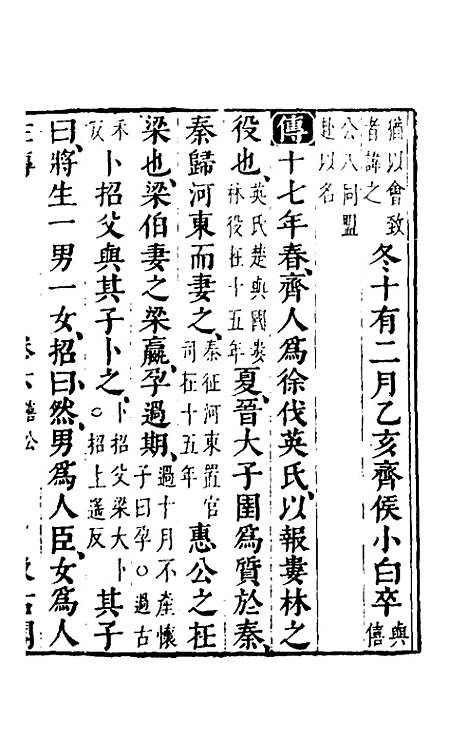 猶以會致者諱之冬十有二月乙亥齊侯小白卒與僖
公八同盟赴以名
傳十七年春、齊人爲徐伐英氏、以報婁林之
役也、英氏楚與國婁林役在十五年夏、晉大子圉爲質於秦、
秦歸河東而妻之、秦征河東置官司在十五年惠公之在
梁也、梁伯妻之梁嬴、孕過期、過十月不產懷子曰孕○過古
禾反卜招父與其子卜之、卜招父梁大卜○招上遙反其子
曰、將生一男一女、招曰、然、男爲人臣、女爲人